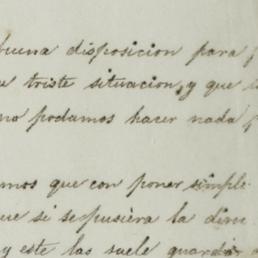 buena disposicion para
triste situacion, y que
no podamos hacer nada
mos que con poner simple
que si se pusiera la direc
y este las suele guardar